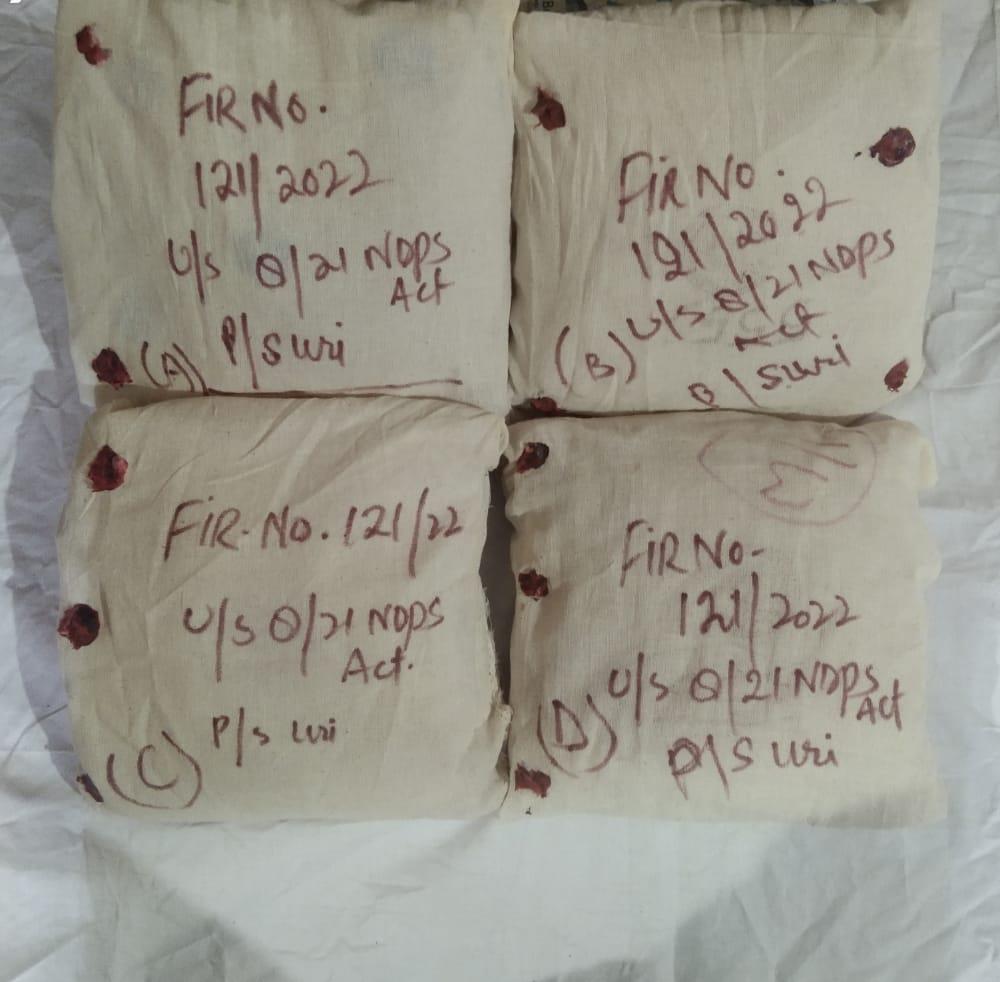 FIR NO.
121/2022
U/s 8/21 NDPS
Act
P/S uri
(A)
FIR NO.
121/2022
U/s 8/21 NDPS
Act
P/S uri
(B)
FIR. NO. 121/22
U/s 8/21 NDPS
Act.
P/s uri
(C)
FIR NO-
121/2022
U/s 8/21 NDPS
Act
P/S uri
(D)